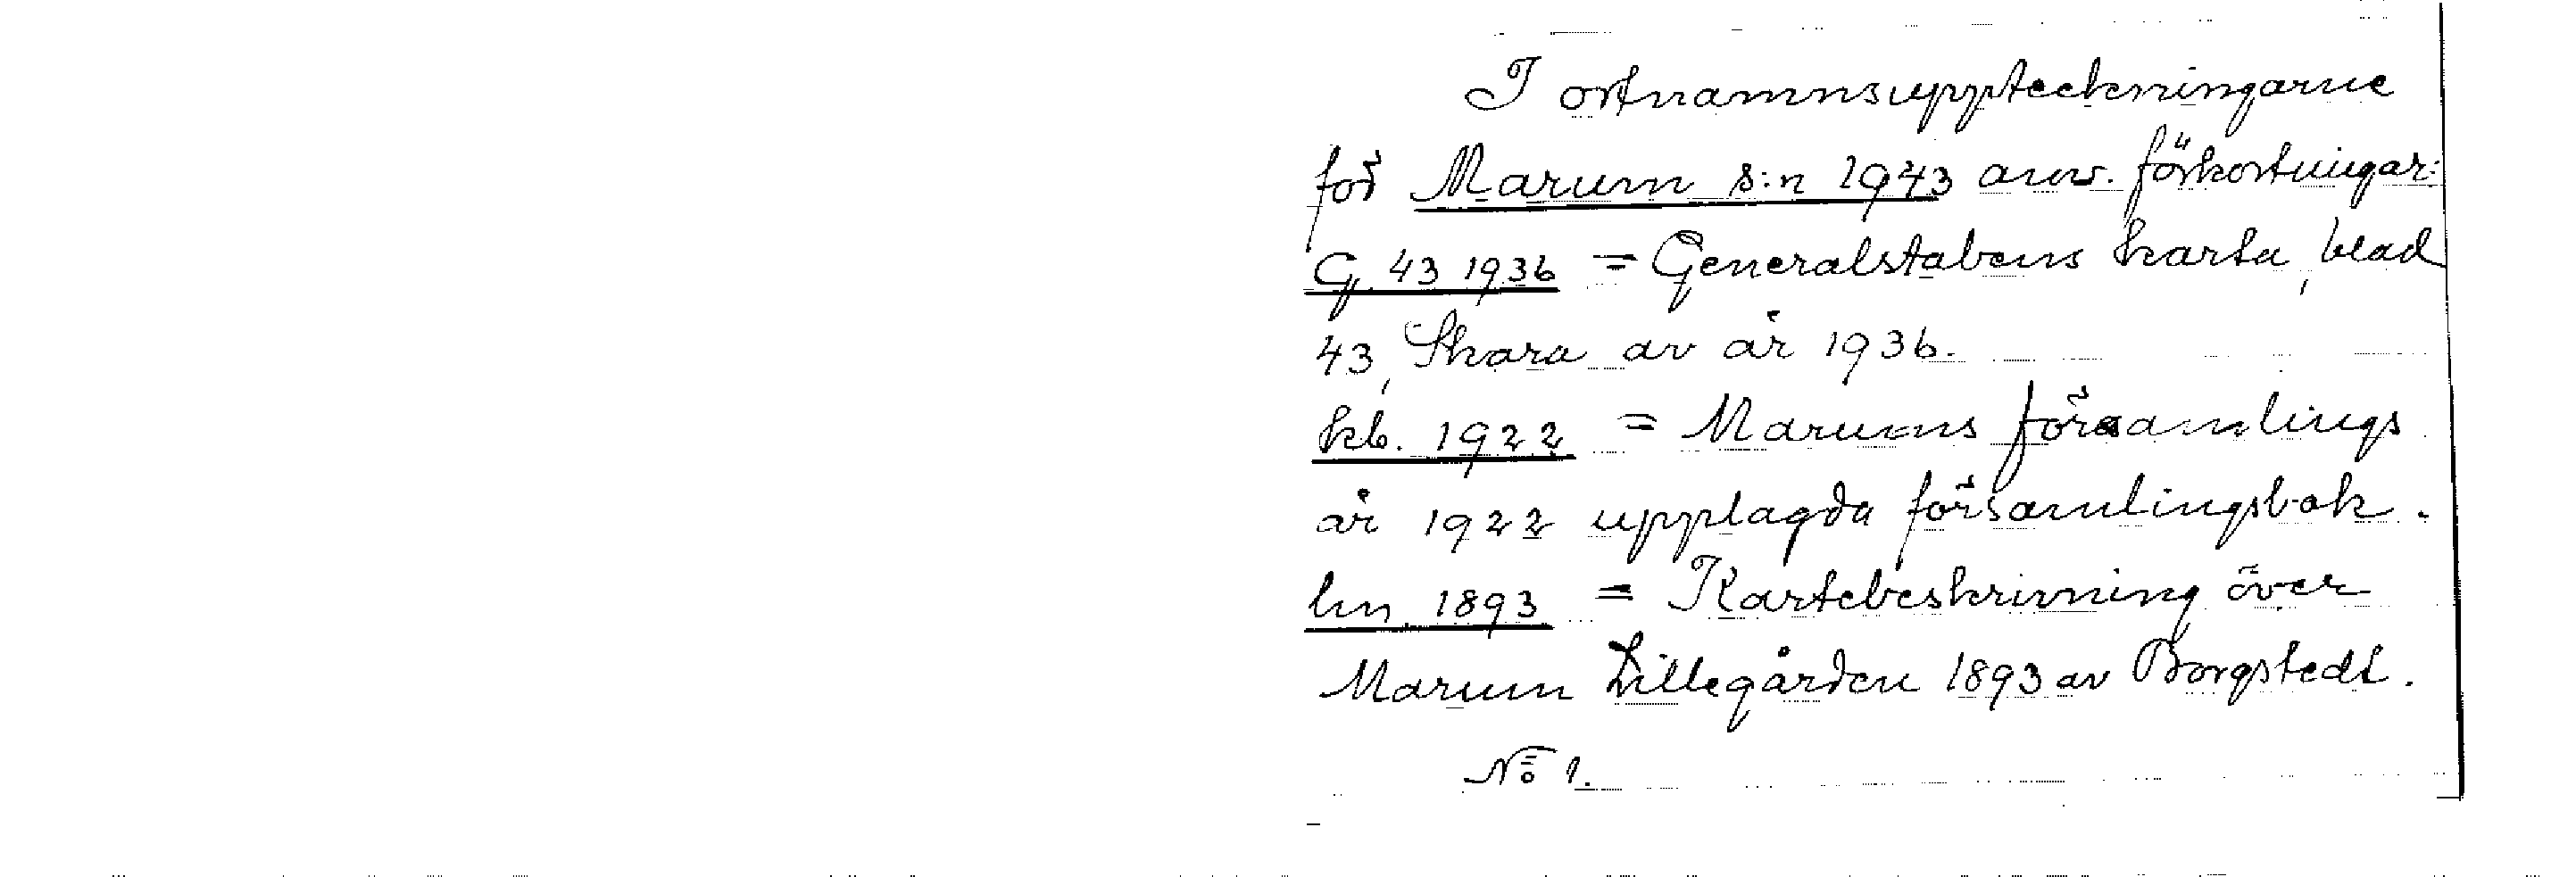 I ortnamnsuppteckningarne
för Marum s:n 1943 anv. förkortningar:
G. 43 1936 = Generalstabens karta, blad
43, Skara av år 1936.
kb. 1922 = Marums församlings
år 1922 upplagda församlingsbok.
lm 1893 = Kartebeskrivning över
Marum Lillegården 1893 av Borgstedt.
No 1.